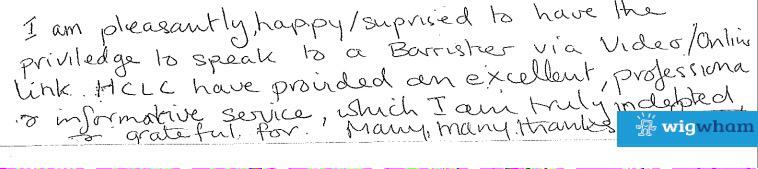 I am pleasantly, happy/suprised to have the
priviledge to speak to a Barrister via Video/Online
link. HCLC have provided an excellent, professiona
& informative service, which I am truly indepted,
& grateful for. Many, many thanks
wigwham